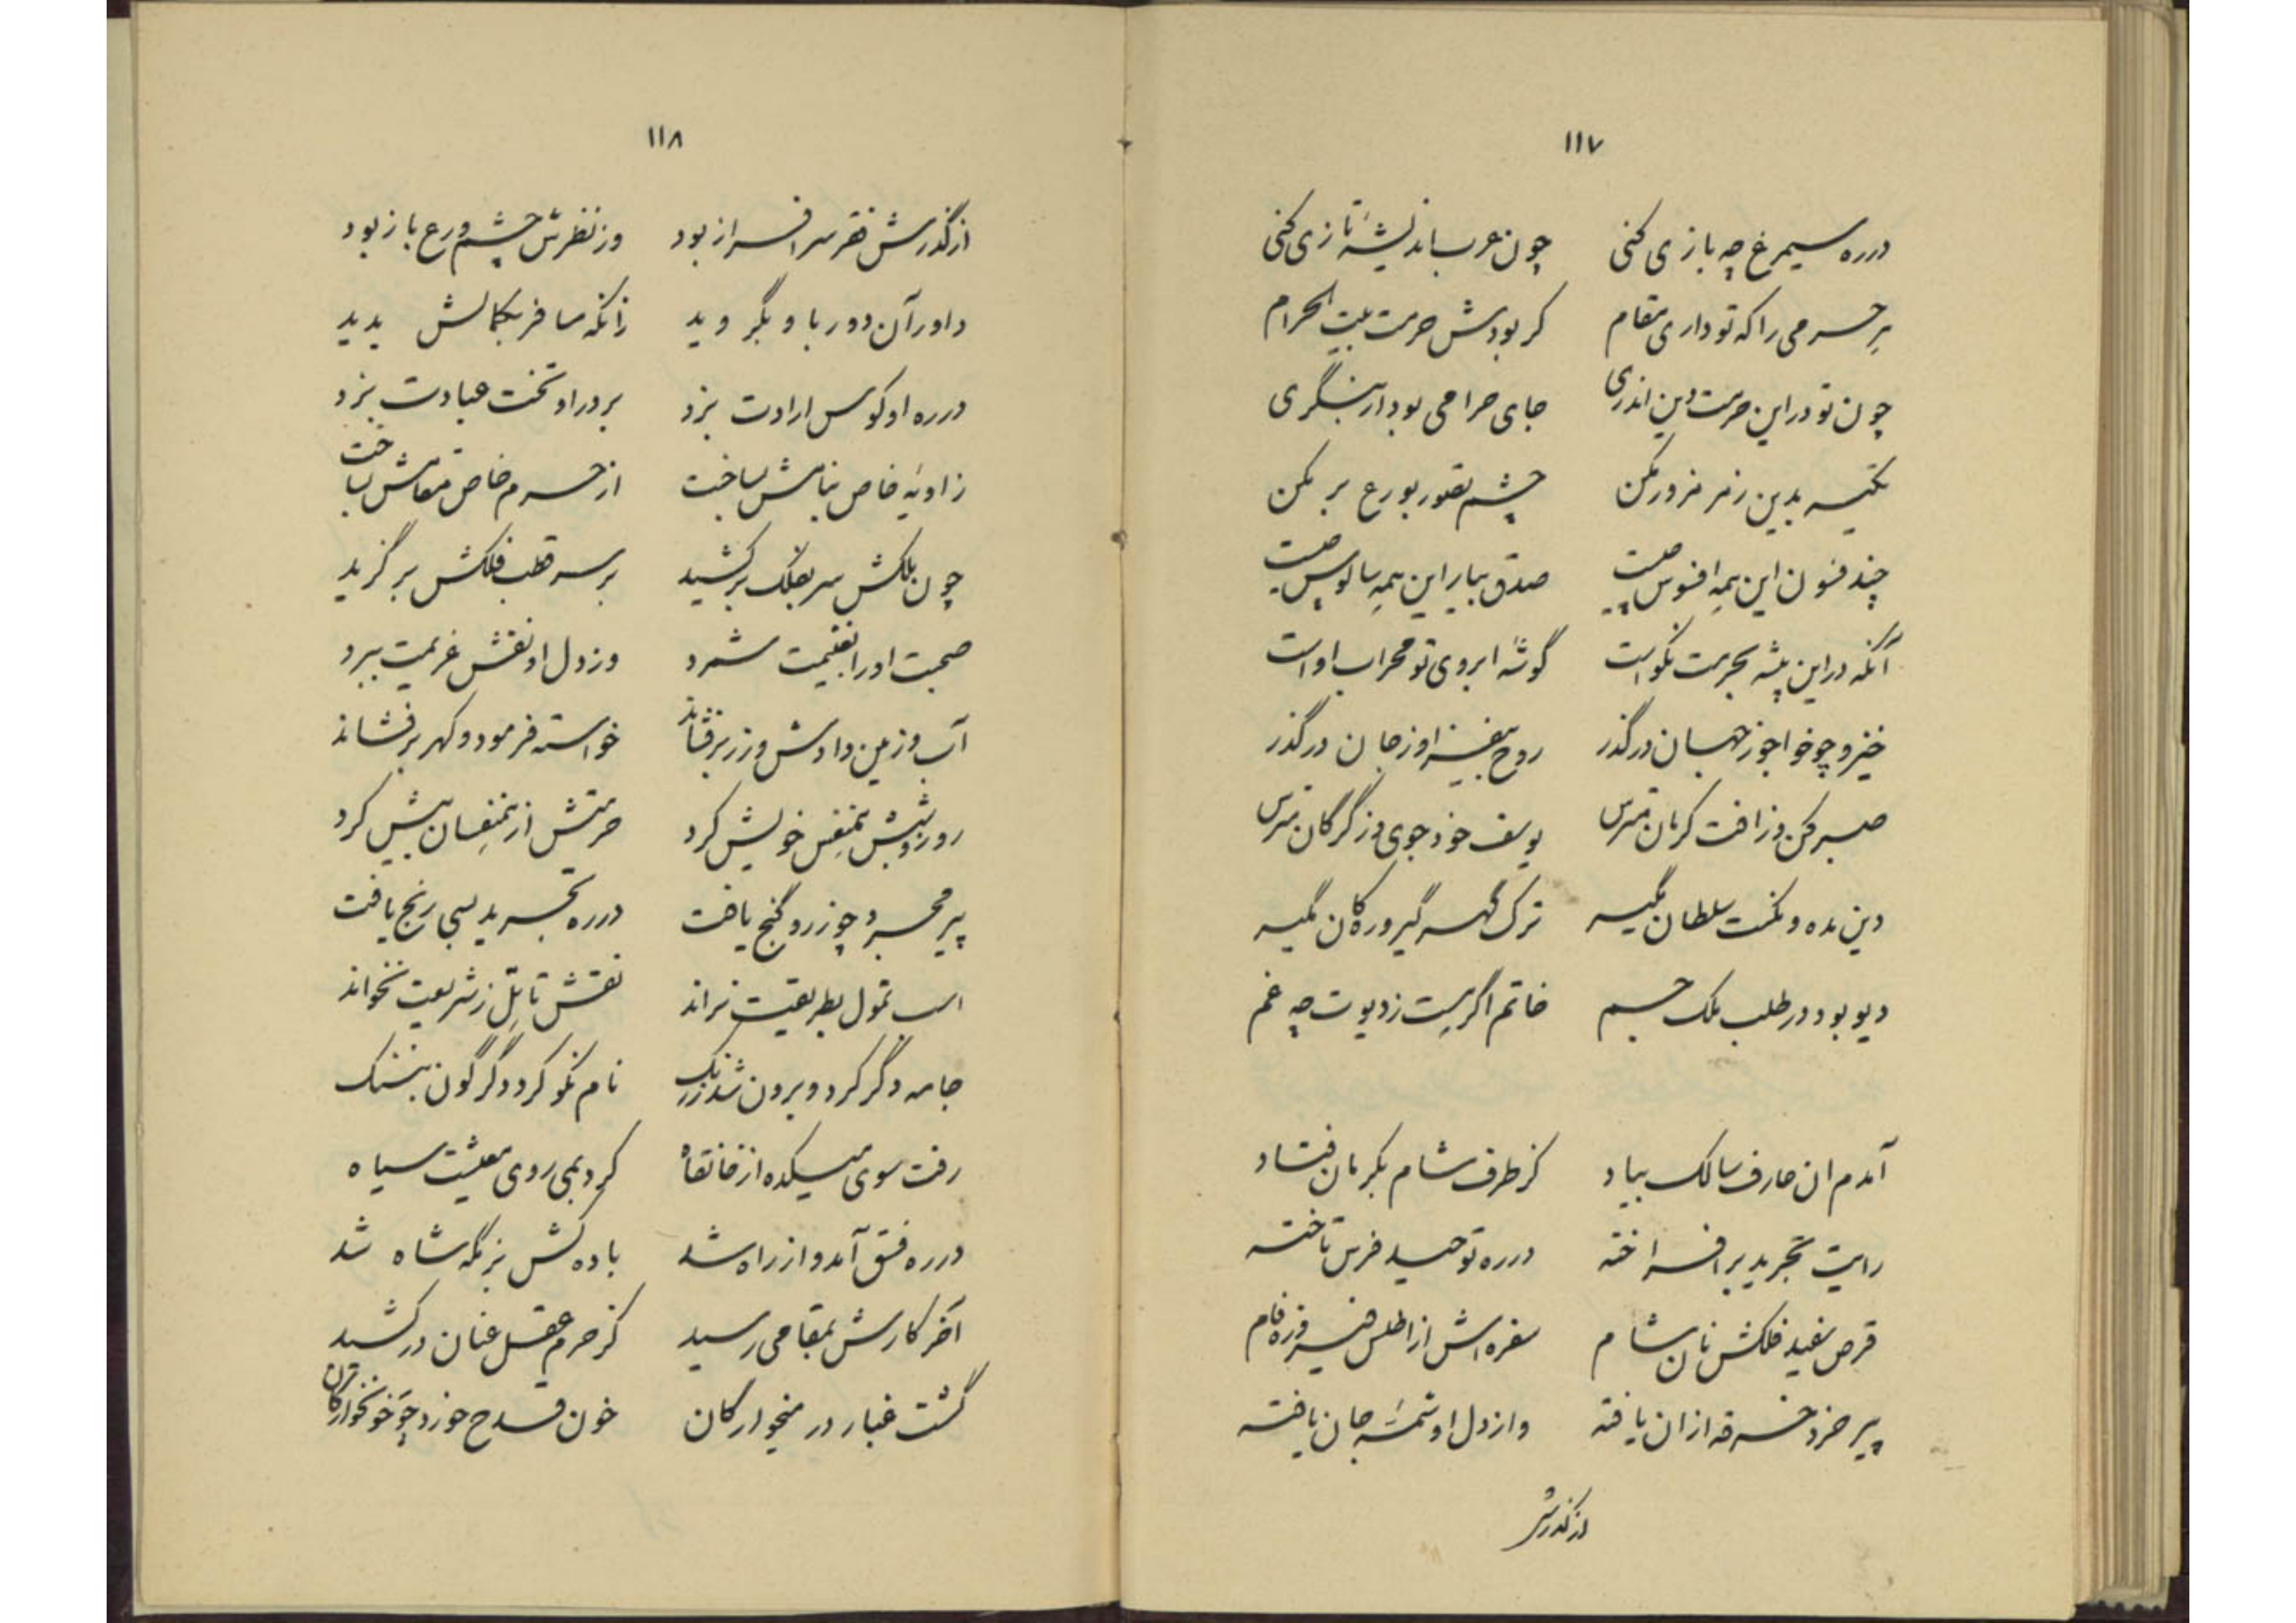 ۱۱۷
درره سیمرغ چه بازی کنی چون عرب اندیشهٔ تازی کنی
بر حرمی را که تو داری مقام کر بودش حرمت بیت الحرام
چون تو در این حرمت دین اندری جای حرامی بود ار بنگری
تکیه بدین زمر مزور مکن چشم تصور بورع بر مکن
چند فسون این همه افسوس چیست صدق بیار این همه سالوس چیست
آنکه در این پیشه بحرمت نکو است گوشهٔ ابروی تو محراب او است
خیز و چو خواجو ز جهان درگذر روح بیفیز او ز جان درگذر
صبر کن وز افت کرمان مترس یوسف خود جوی وز گرگان مترس
دین مده و نکمت سلطان مگیر ترک گهر گیر و ره کان مگیر
دیو بود در طلب ملک جم خاتم اگر هست ز دیوت چه غم
آمدم ان عارف سالک بیاد کز طرف شام بکرمان فتاد
رایت تجرید بر افراخته درره توحید فرس تاخته
قرص سفید فلکش نان شام سفره اش از اطلس فیروزه فام
پیر خرد خرقه ازان یافته و از دل او شمهٔ جان یافته
از گذرش
۱۱۸
از گذرش فقر سرافراز بود وز نظرش چشم ورع باز بود
داور آن دور با و بگروید زانکه مسافر بکمالش بدید
درره او کوس ارادت بزد بر در او تخت عبادت بزد
زاویهٔ خاص بنامش بساخت از حرم خاص مقامش بساخت
چون بلکش سر بفلک بر کشید بر سر قطب فلکش بر گزید
صحبت او را بغنیمت شمرد وز دل او نقش غریمت ببرد
آب و زمین دادش و زر برفشاند خواسته فرمود و کهر برفشاند
روز و شبش همنفس خویش کرد حرمتش از همنفسان بیش کرد
پیر مجرد چو زر و گنج یافت درره تجرید بسی رنج یافت
اسب تمول بطریقیت نراند نقش تاهّل ز شریعت نخواند
جامه دگر کرد و برون شد ز رنگ نام نکو کرد دگرگون بننگ
رفت سوی میکده از خانقاه کرد بمی روی معیشت سیاه
درره فسق آمد و از راه شد باده کش بزمگه شاه شد
آخر کارش بمقامی رسید کز حرم عقل عنان در کشید
گشت غبار در میخوارگان خون قدح خورد چو خونخوارگان